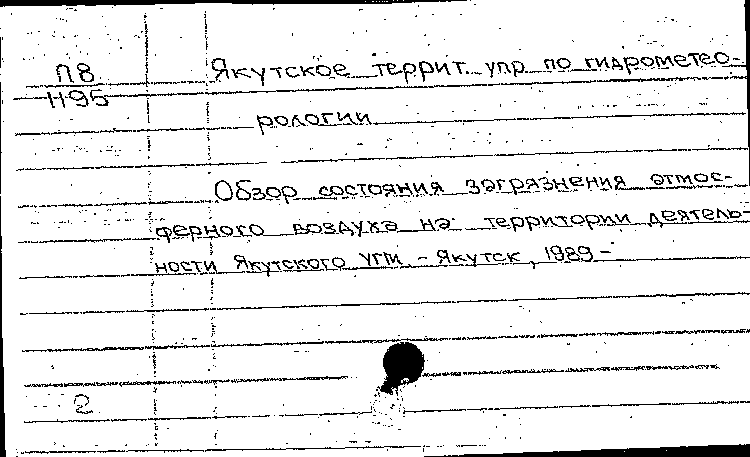 П8 Якутское террит. упр. по гидрометео-
1195
рологии.
Обзор состояния загрязнения атмос-
ферного воздуха на территории деятель-
ности Якутского УГМ. - Якутск, 1989 -
2